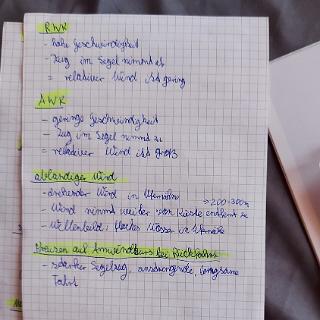 RWK
- hohe Geschwindigkeit
- Zug im Segel nimmt ab
= relativer Wind ist gering
AWK
- geringe Geschwindigkeit
- Zug im Segel nimmt zu
= relativer Wind ist groß
ablandiger Wind
- drehender Wind in Ufernähe
→ 200-300m
- Wind nimmt weiter von Küste entfernt zu
- Wellenbild: flaches Wasser in Ufernähe
Kreuzen auf Amwindkurs bei Rückfahrt
- starker Segelzug, anstrengende, langsame
Fahrt